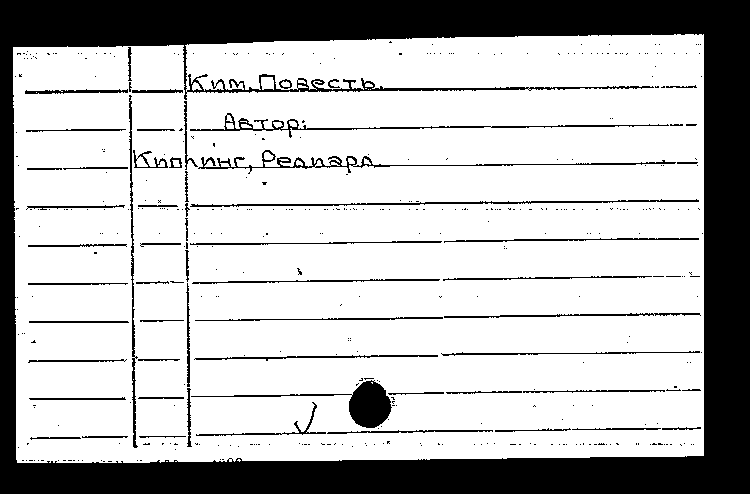 Ким. Повесть.
Автор:
Киплинг, Редиард